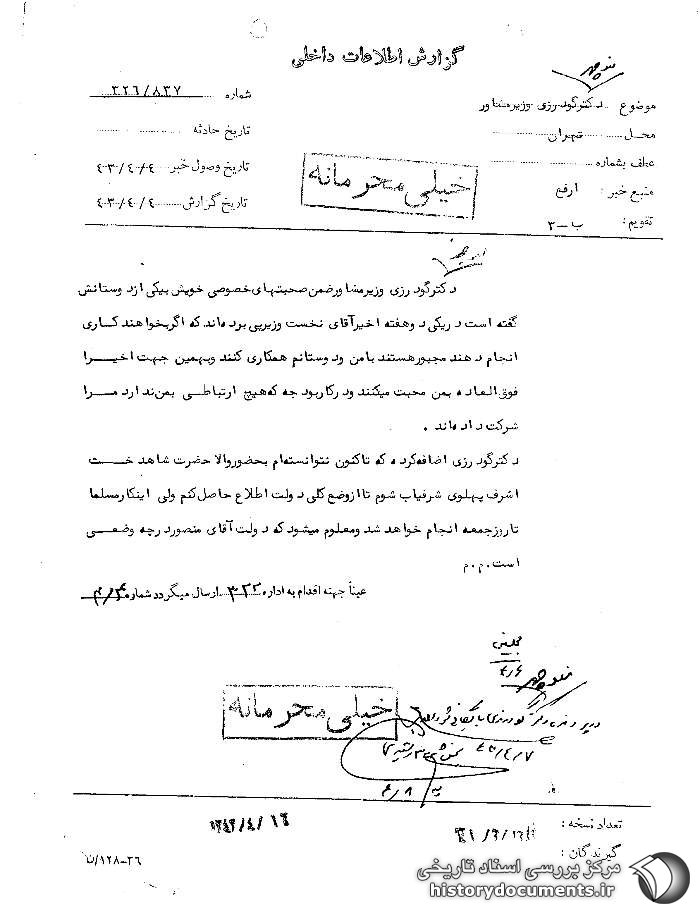 گزارش اطلاعات داخلی
منوچهر
موضوع دکترگودرزی وزیرمشاور
شماره ۳۲۶/۸۳۷
محل تهران
تاریخ حادثه
عطف بشماره
تاریخ وصول خبر ۴۳/۴/۴
منبع خبر : ارفع
تاریخ گزارش ۴۳/۴/۴
تقویم : ب-۳
خیلی محرمانه
دکترگودرزی وزیرمشاورضمن صحبتهای خصوصی خویش بیکی ازدوستانش
گفته است دریکی دوهفته اخیرآقای نخست وزیرپی برده‌اند که اگربخواهند کاری
انجام دهند مجبورهستند بامن ودوستانم همکاری کنند وبهمین جهت اخیرا
فوق‌العاده بمن محبت میکنند ودرکاربودجه که‌هیچ ارتباطی بمن‌ندارد مرا
شرکت داده‌اند .
دکترگودرزی اضافه‌کرده که تاکنون نتوانسته‌ام بحضوروالاحضرت شاهدخت
اشرف پهلوی شرفیاب شوم تاازوضع‌کلی دولت اطلاع حاصل‌کنم ولی اینکارمسلما
تاروزجمعه انجام خواهد شد ومعلوم میشودکه دولت‌آقای منصوردرچه وضعی
است.م.م
عیناً جهته اقدام به اداره ۳۲۲ ارسال میگردد شماره
منوچهر
۴۳/۴/۷
خیلی محرمانه
۴/۸
تعداد نسخه :
۱۳۴۳/۴/۱۶
گیرندگان :
۳۶-۱۲۸/ن
مرکز بررسی اسناد تاریخی
historydocuments.ir